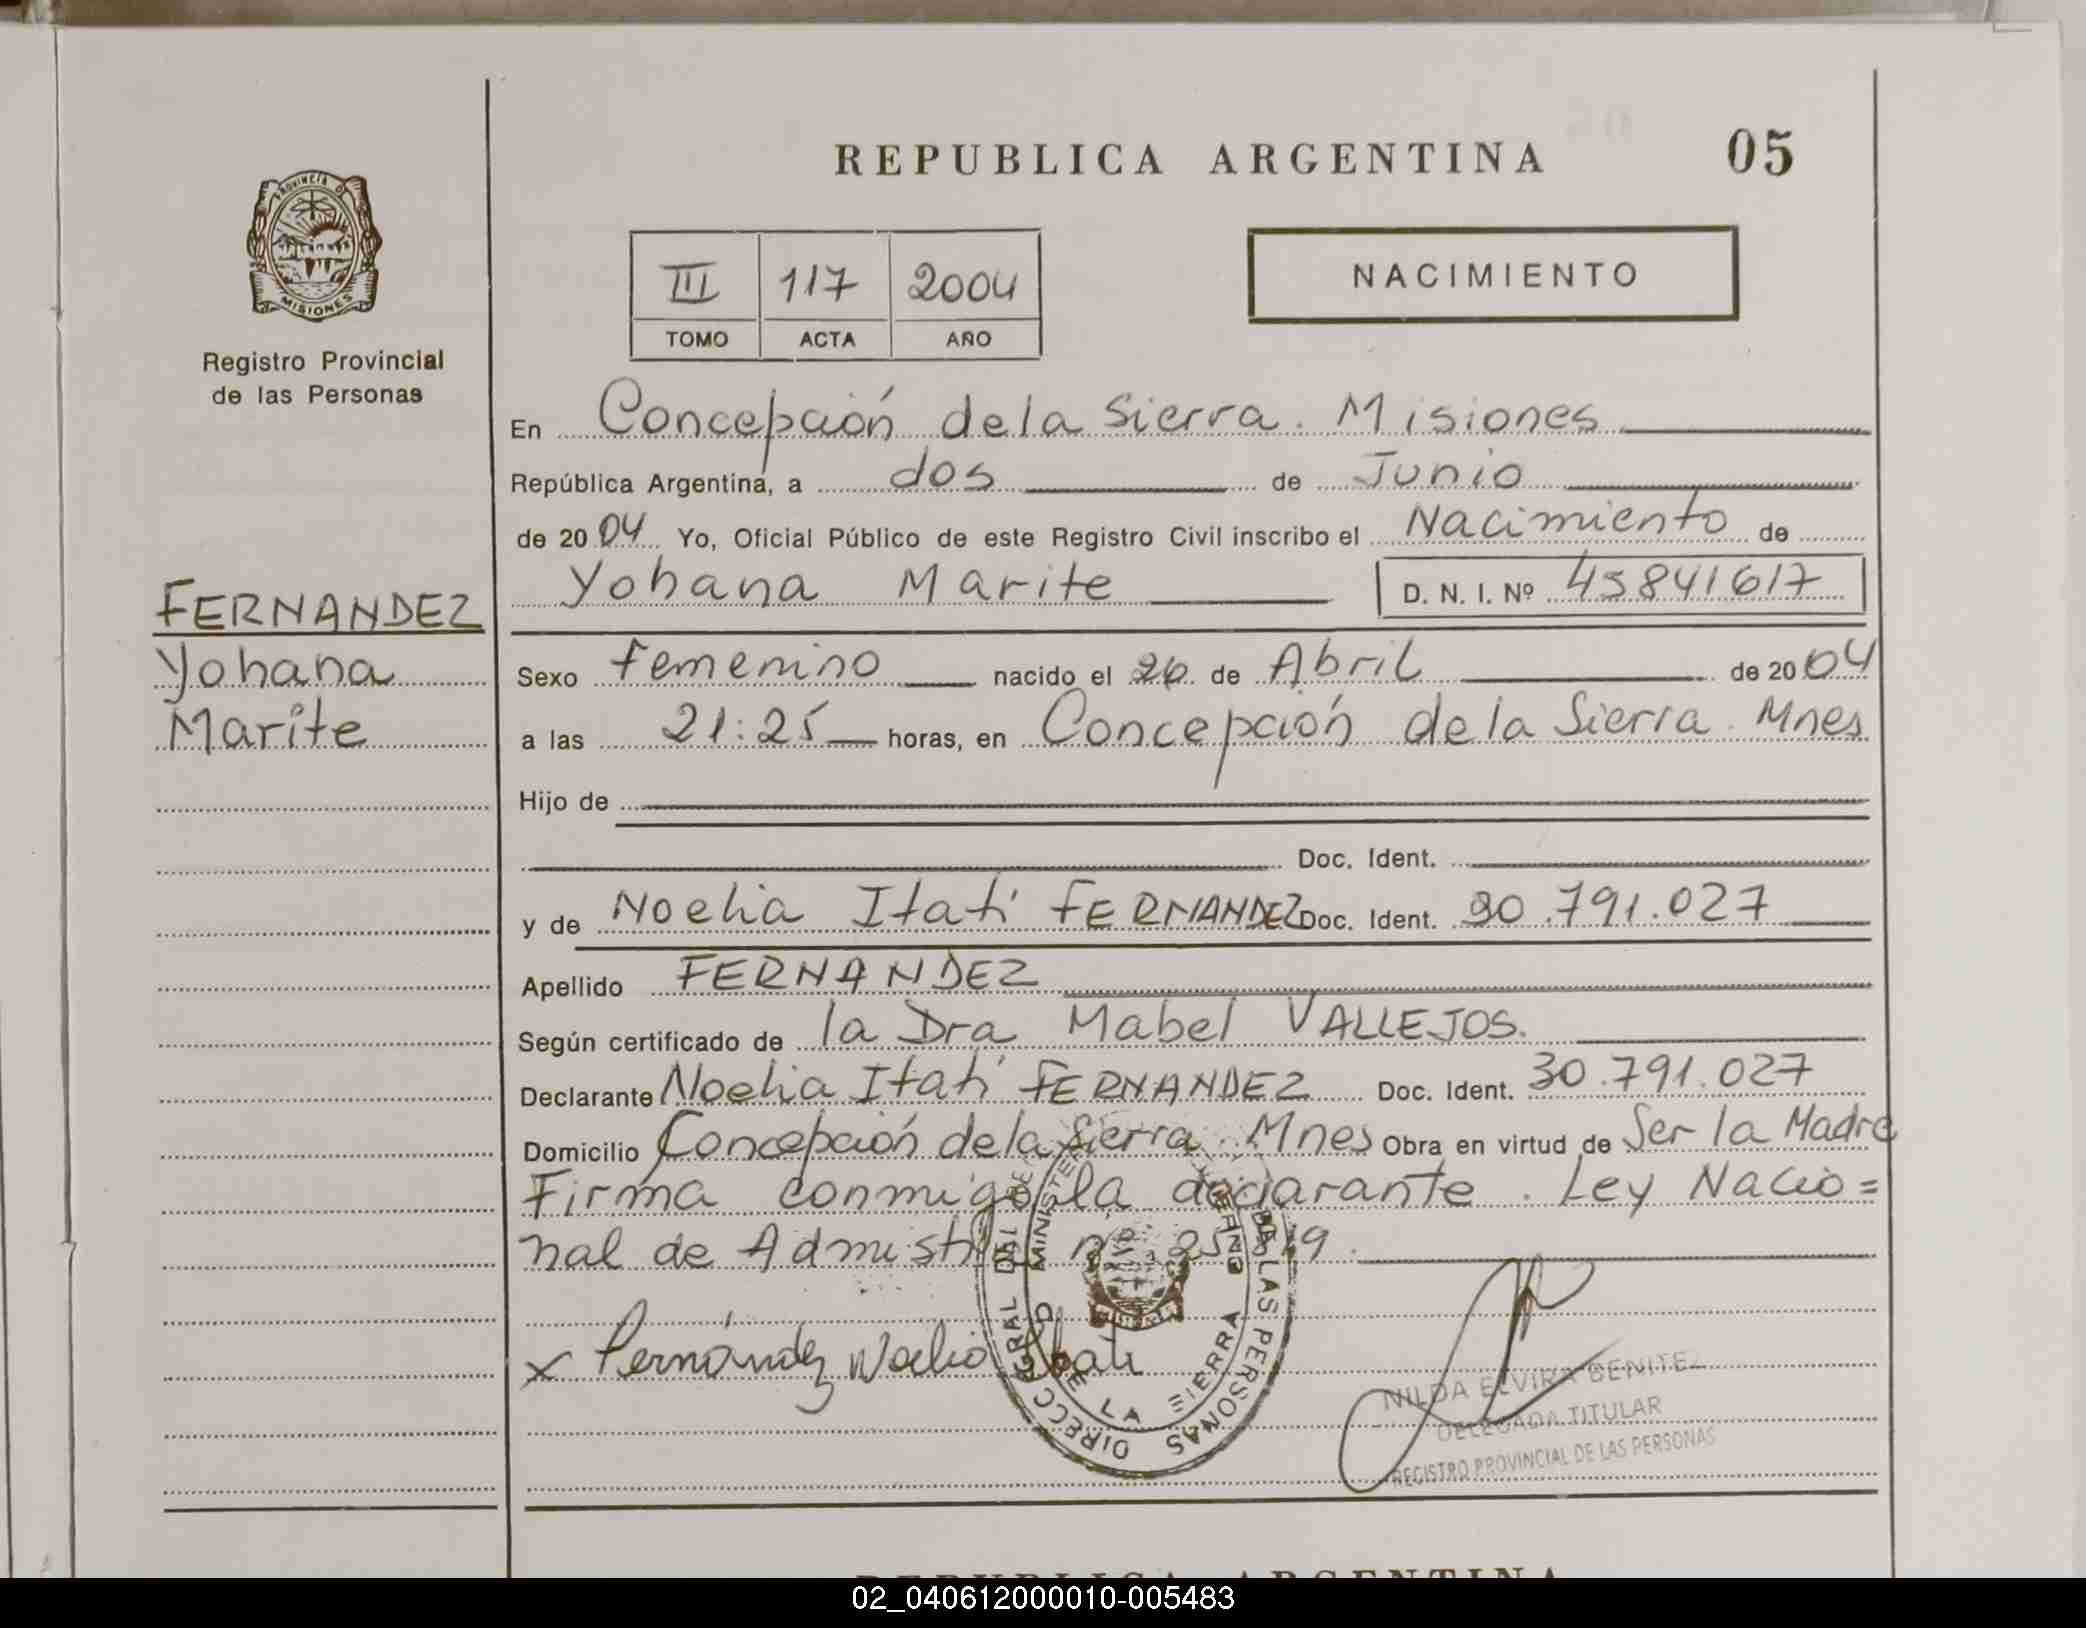 REPUBLICA ARGENTINA
05
PROVINCIA DE
MISIONES
Registro Provincial
de las Personas
III 117 2004
TOMO ACTA AÑO
NACIMIENTO
En Concepción de la Sierra. Misiones
República Argentina, a dos de Junio
de 2004 Yo, Oficial Público de este Registro Civil inscribo el Nacimiento de
Yohana Marite D. N. I. Nº 45841617
FERNANDEZ
Yohana
Marite
Sexo femenino nacido el 26 de Abril de 2004
a las 21:25 horas, en Concepción de la Sierra. Mnes
Hijo de
Doc. Ident.
y de Noelia Itatí FERNANDEZ Doc. Ident. 30.791.027
Apellido FERNANDEZ
Según certificado de la Dra Mabel VALLEJOS.
Declarante Noelia Itatí FERNANDEZ Doc. Ident. 30.791.027
Domicilio Concepción de la Sierra. Mnes Obra en virtud de Ser la Madre
Firma conmigo la declarante. Ley Nacio=
nal de
x Fernández Noelia Itati
DE LA SIERRA
LAS PERSONAS
NILDA ELVIRA BENITEZ
DELEGADA TITULAR
REGISTRO PROVINCIAL DE LAS PERSONAS
REPUBLICA ARGENTINA
02_040612000010-005483